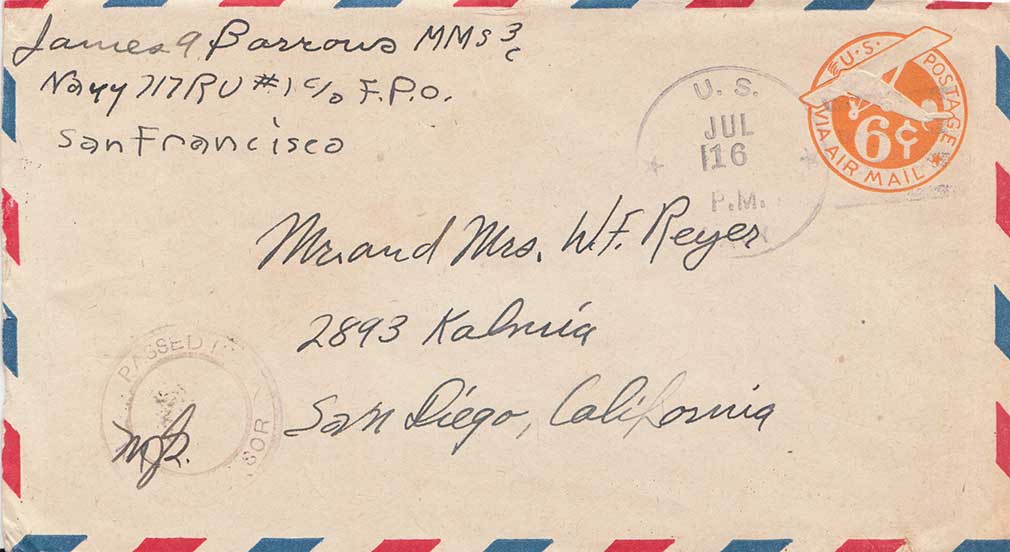 James A. Barrows MMS 3/c
Navy 717 RU #1 c/o F.P.O.
San Francisco
U.S. POSTAGE
6¢
VIA AIR MAIL
U. S.
JUL
16
P.M.
Mr. and Mrs. W.F. Reyer
2893 Kalmia
San Diego, California
PASSED
SOR